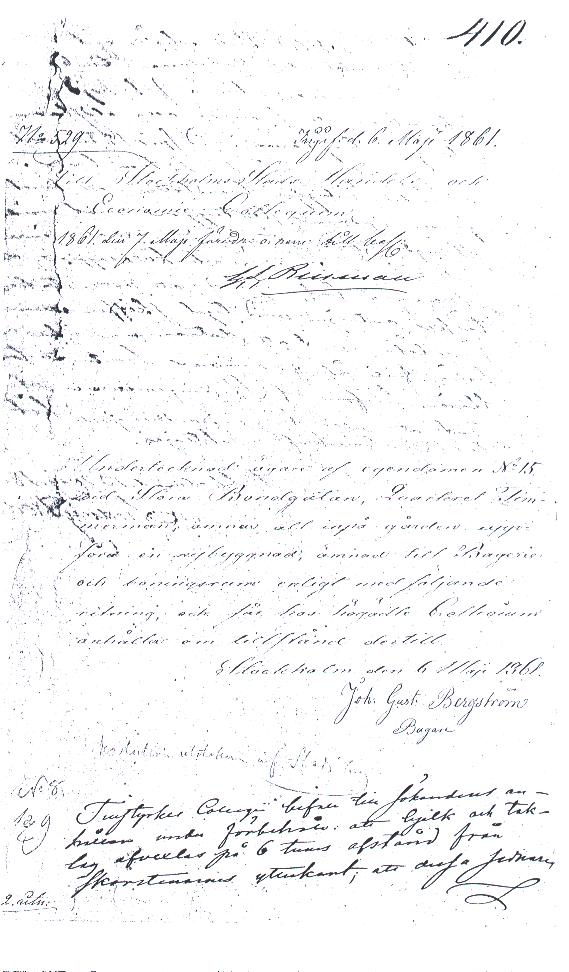 410.
No 529
Ingifv. d. 6. Maji 1861.
Till Stockholms Stads Handels och
Economie Collegium.
1861. den 7. Maji
Rinman
Undertecknad ägare af egendomen No 15
vid Stora Bondgatan, Quarteret Tim-
merman, ämnar att inpå gården upp-
föra en nybyggnad, ämnad till Bageri
och boningsrum enligt med följande
ritning, och får hos högädle Collegium
anhålla om tillstånd dertill.
Stockholm den 6 Maji 1861.
Joh. Gust. Bergström
Bagare
No 8.
Tillstyrkes Collegii bifall till sökandens an-
hållan under förbehåll: att bjelk och tak-
lag afvexlas på 6 tums afstånd från
skorstenarnes ytterkant, att dessa sednare